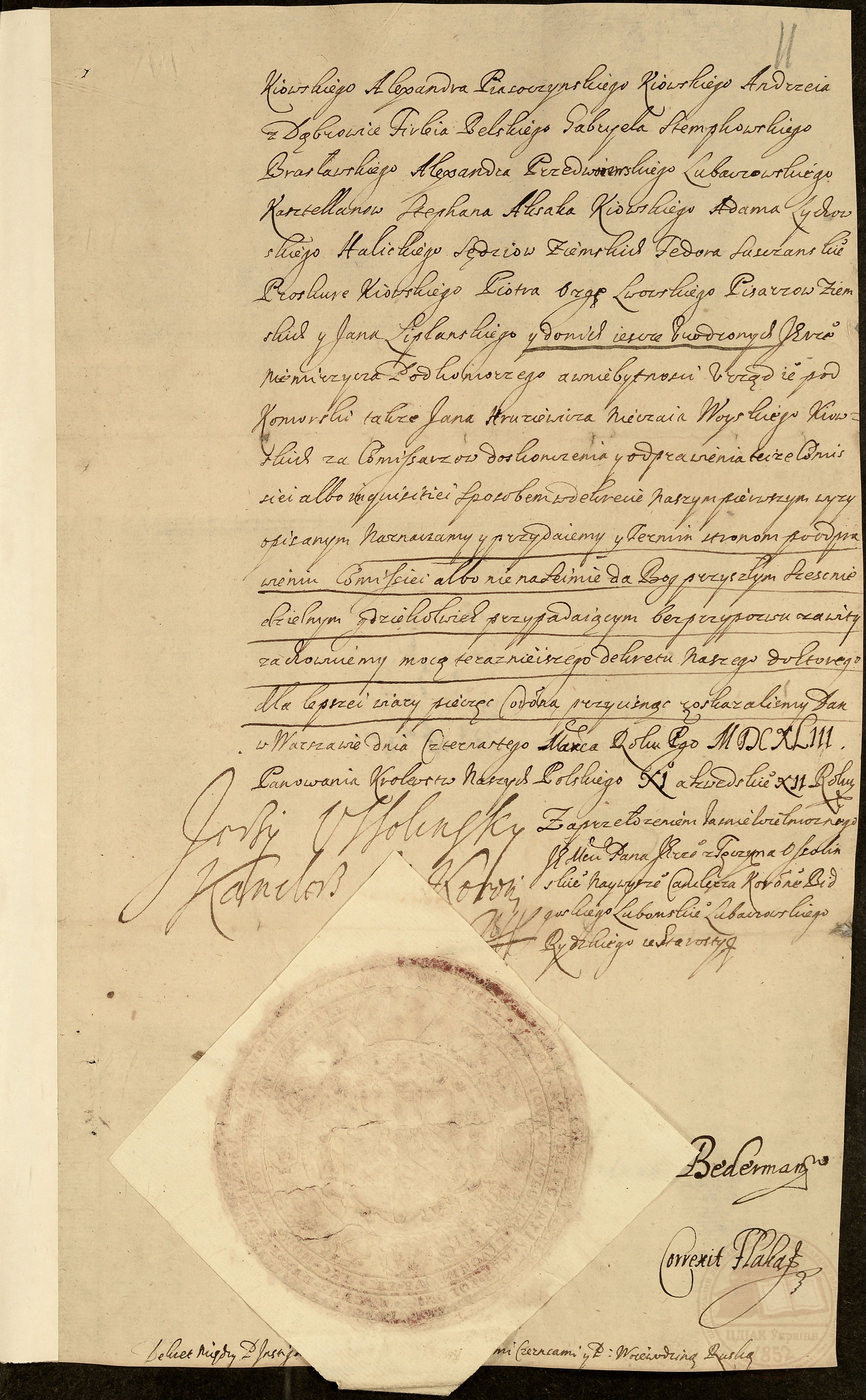 11
Kiowskiego Alexandra Piasoczynskiego Kiowskiego Andrzeia
z Dąbrowice Firleia Belskiego Gabryela Stempkowskiego
Brasławskiego Alexandra Przedwoiewskiego Lubaczowskiego
Kasztellanow Stephana Aksaka Kiowskiego Adama Lychow
skiego Halickiego Sędziow Ziemskich Fedora Suszczanskie
Proskure Kiowskiego Piotra Ozgę Lwowskiego Pisarzow Ziem
skich y Jana Lipłanskiego y do nich ieszcze Urodzonych Jerze
Niemirzycza Podkomorzego a w niebytnosci Urzędie pod
Komorski takze Jana Niezaia Woyskiego Kiow=
skich za Comissarzow do skonczenia y odprawienia teyze Comis
siei albo inquisitiei sposobem w dekrecie naszym pierwszym wyzy
opisanym naznaczamy y przydaiemy y Termin stronom po odpra
wieniu Comissiei albo nie na Seimie da Bog przyszłym szescnie
dzielnym gdziekolwiek przypadaiącym bez przypozwu zawity
zachowuiemy mocą terazniejszego dekretu naszego do ktorego
dla lepszei wiary pieczęc Coronną przycisnąc roskazalismy Dan
w Warszawie dnia Czternastego Marca Roku Pgo MDCXLIII.
Panowania Krolewstw Naszych Polskiego XI a Szwedskie XII Roku
Jerzy Ossolinsky
Kanclerz Koron
Za przełozeniem Jasnie Wielmoznego
Pana z Tęczyna Ossolin
skie Naywysze Canclerza Korone Bid
goskiego Lubomskie Lubaczowskiego
Starosty
Bederman
Correxit
ЦДІАК України
1852
Dekret między P Insti mi Czerncami y P: Woiewodziną Ruską